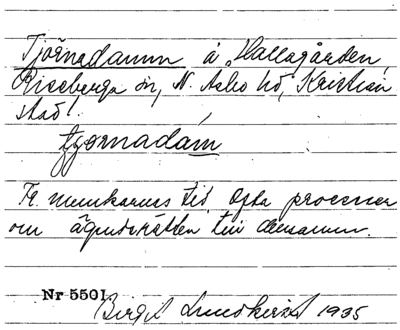 Tjörnadamm å Hallagården,
Riseberga sn, N. Åsbo hd, Kristian
stad.
tjyornadám
Fr. munkarnes tid. Ofta processer
om äganderätten till dammen.
Nr 5501
Birgit Lundkvist 1935